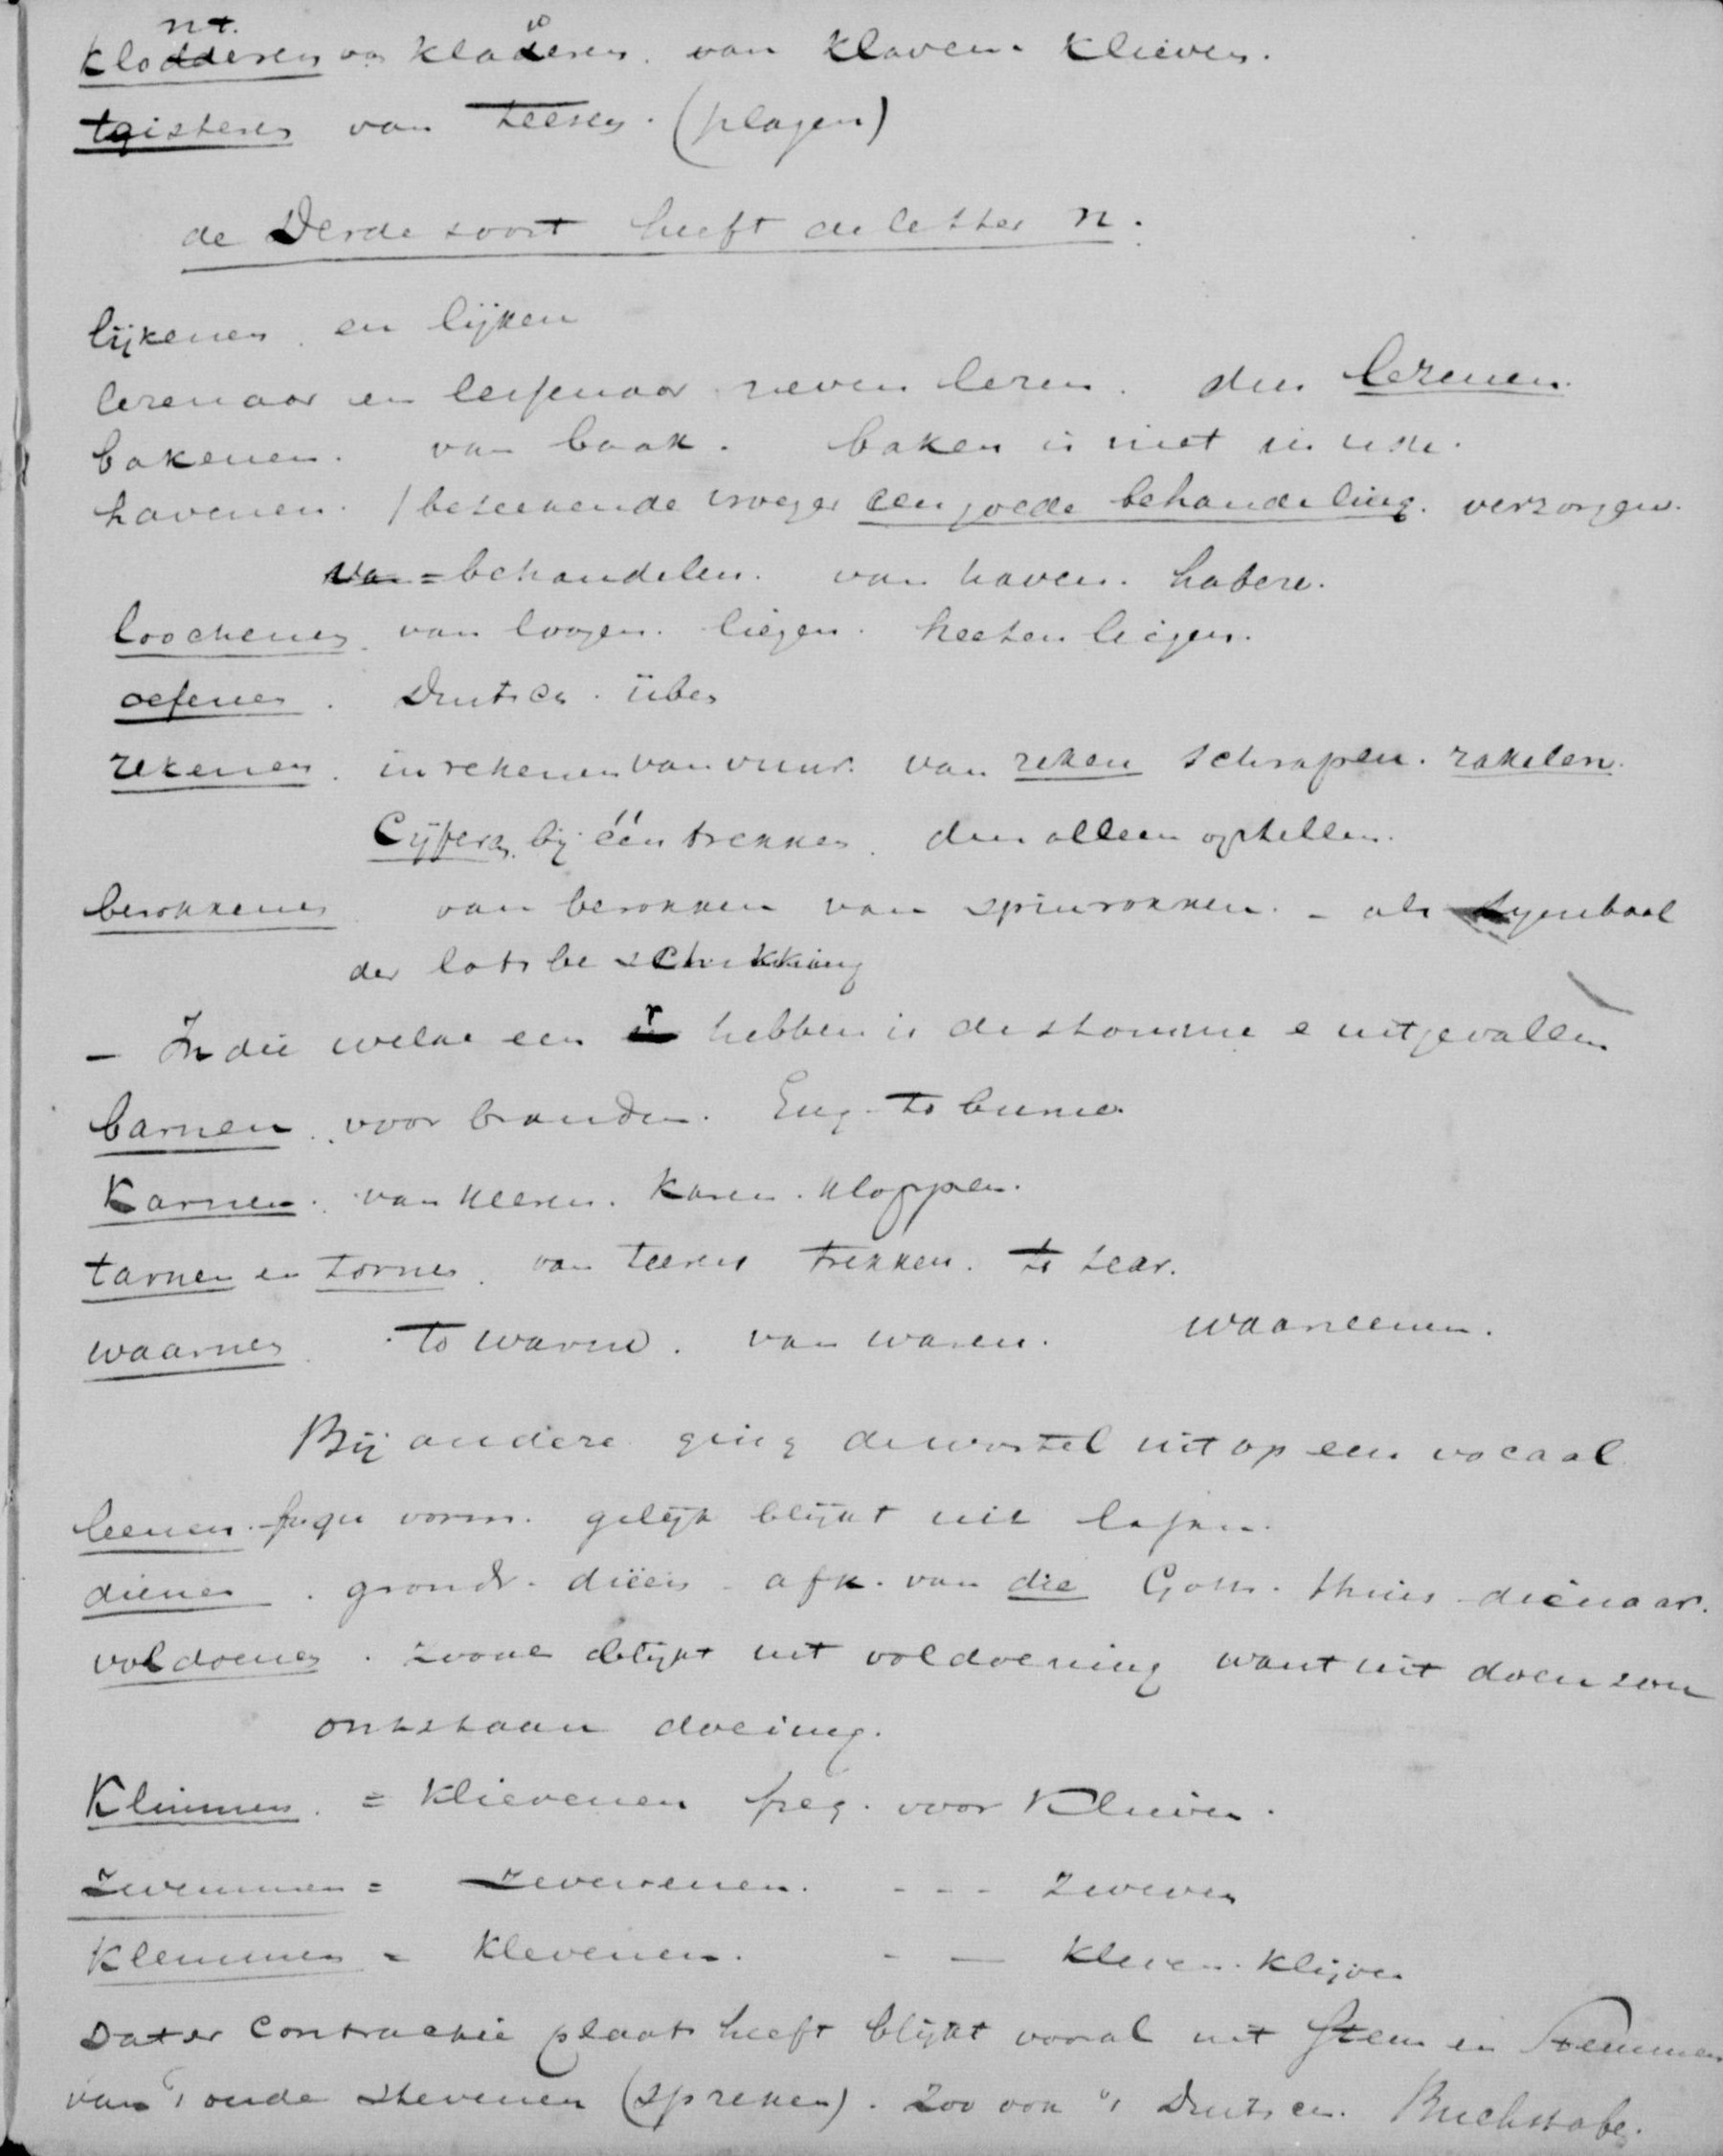 nt.
klodderen van kladeren. van klaven. klieven.
teisteren van teesen. (plagen)
de Derde soort heeft de letter n.
lijkenen en lijken
lezenaar en lessenaar neven lezen. dus lezenen.
bakenen. van baak. baken is niet in use.
havenen. / beteekende vroeger een goede behandeling. verzorgen.
van = behandelen. van haven. habere.
loochenen van loogen. liegen. heeten liegen.
oefenen. Duitsch. üben
rekenen. inrekenen van vuur. van reken schrapen. rakelen.
Cijfers bij één trekken. dus alleen optellen.
berokkenen van berokken van spinrokken. - als symbool
der lotsbeschikking
- In die welke een r hebben is de stomme e uitgevallen
barnen. voor branden. Eng. to burne.
Karnen. van keeren. karen. kloppen.
tarnen en tornen. van teeren trekken. to tear.
waarnen. to warne. van waren. waarneemen.
Bij andere ging de wortel uit op een vocaal
leenen. frequ vorm. gelijk blijkt uit
dienen. grondv. dieën. afk. van die Goth. thius dienaar.
voldoenen. zooals blijkt uit voldoening want uit doen zou
ontstaan doeing.
Klimmen. = klievenen freq. voor klieven.
Zwemmen = zwevenen. - - - zweven
Klemmen = klevenen. - — kleven. klijven
Dat er contractie plaats heeft blijkt vooral uit stem en stemmen
van 't oude stevenen (spreken). zoo ook 't Duitsch. Buchstabe.